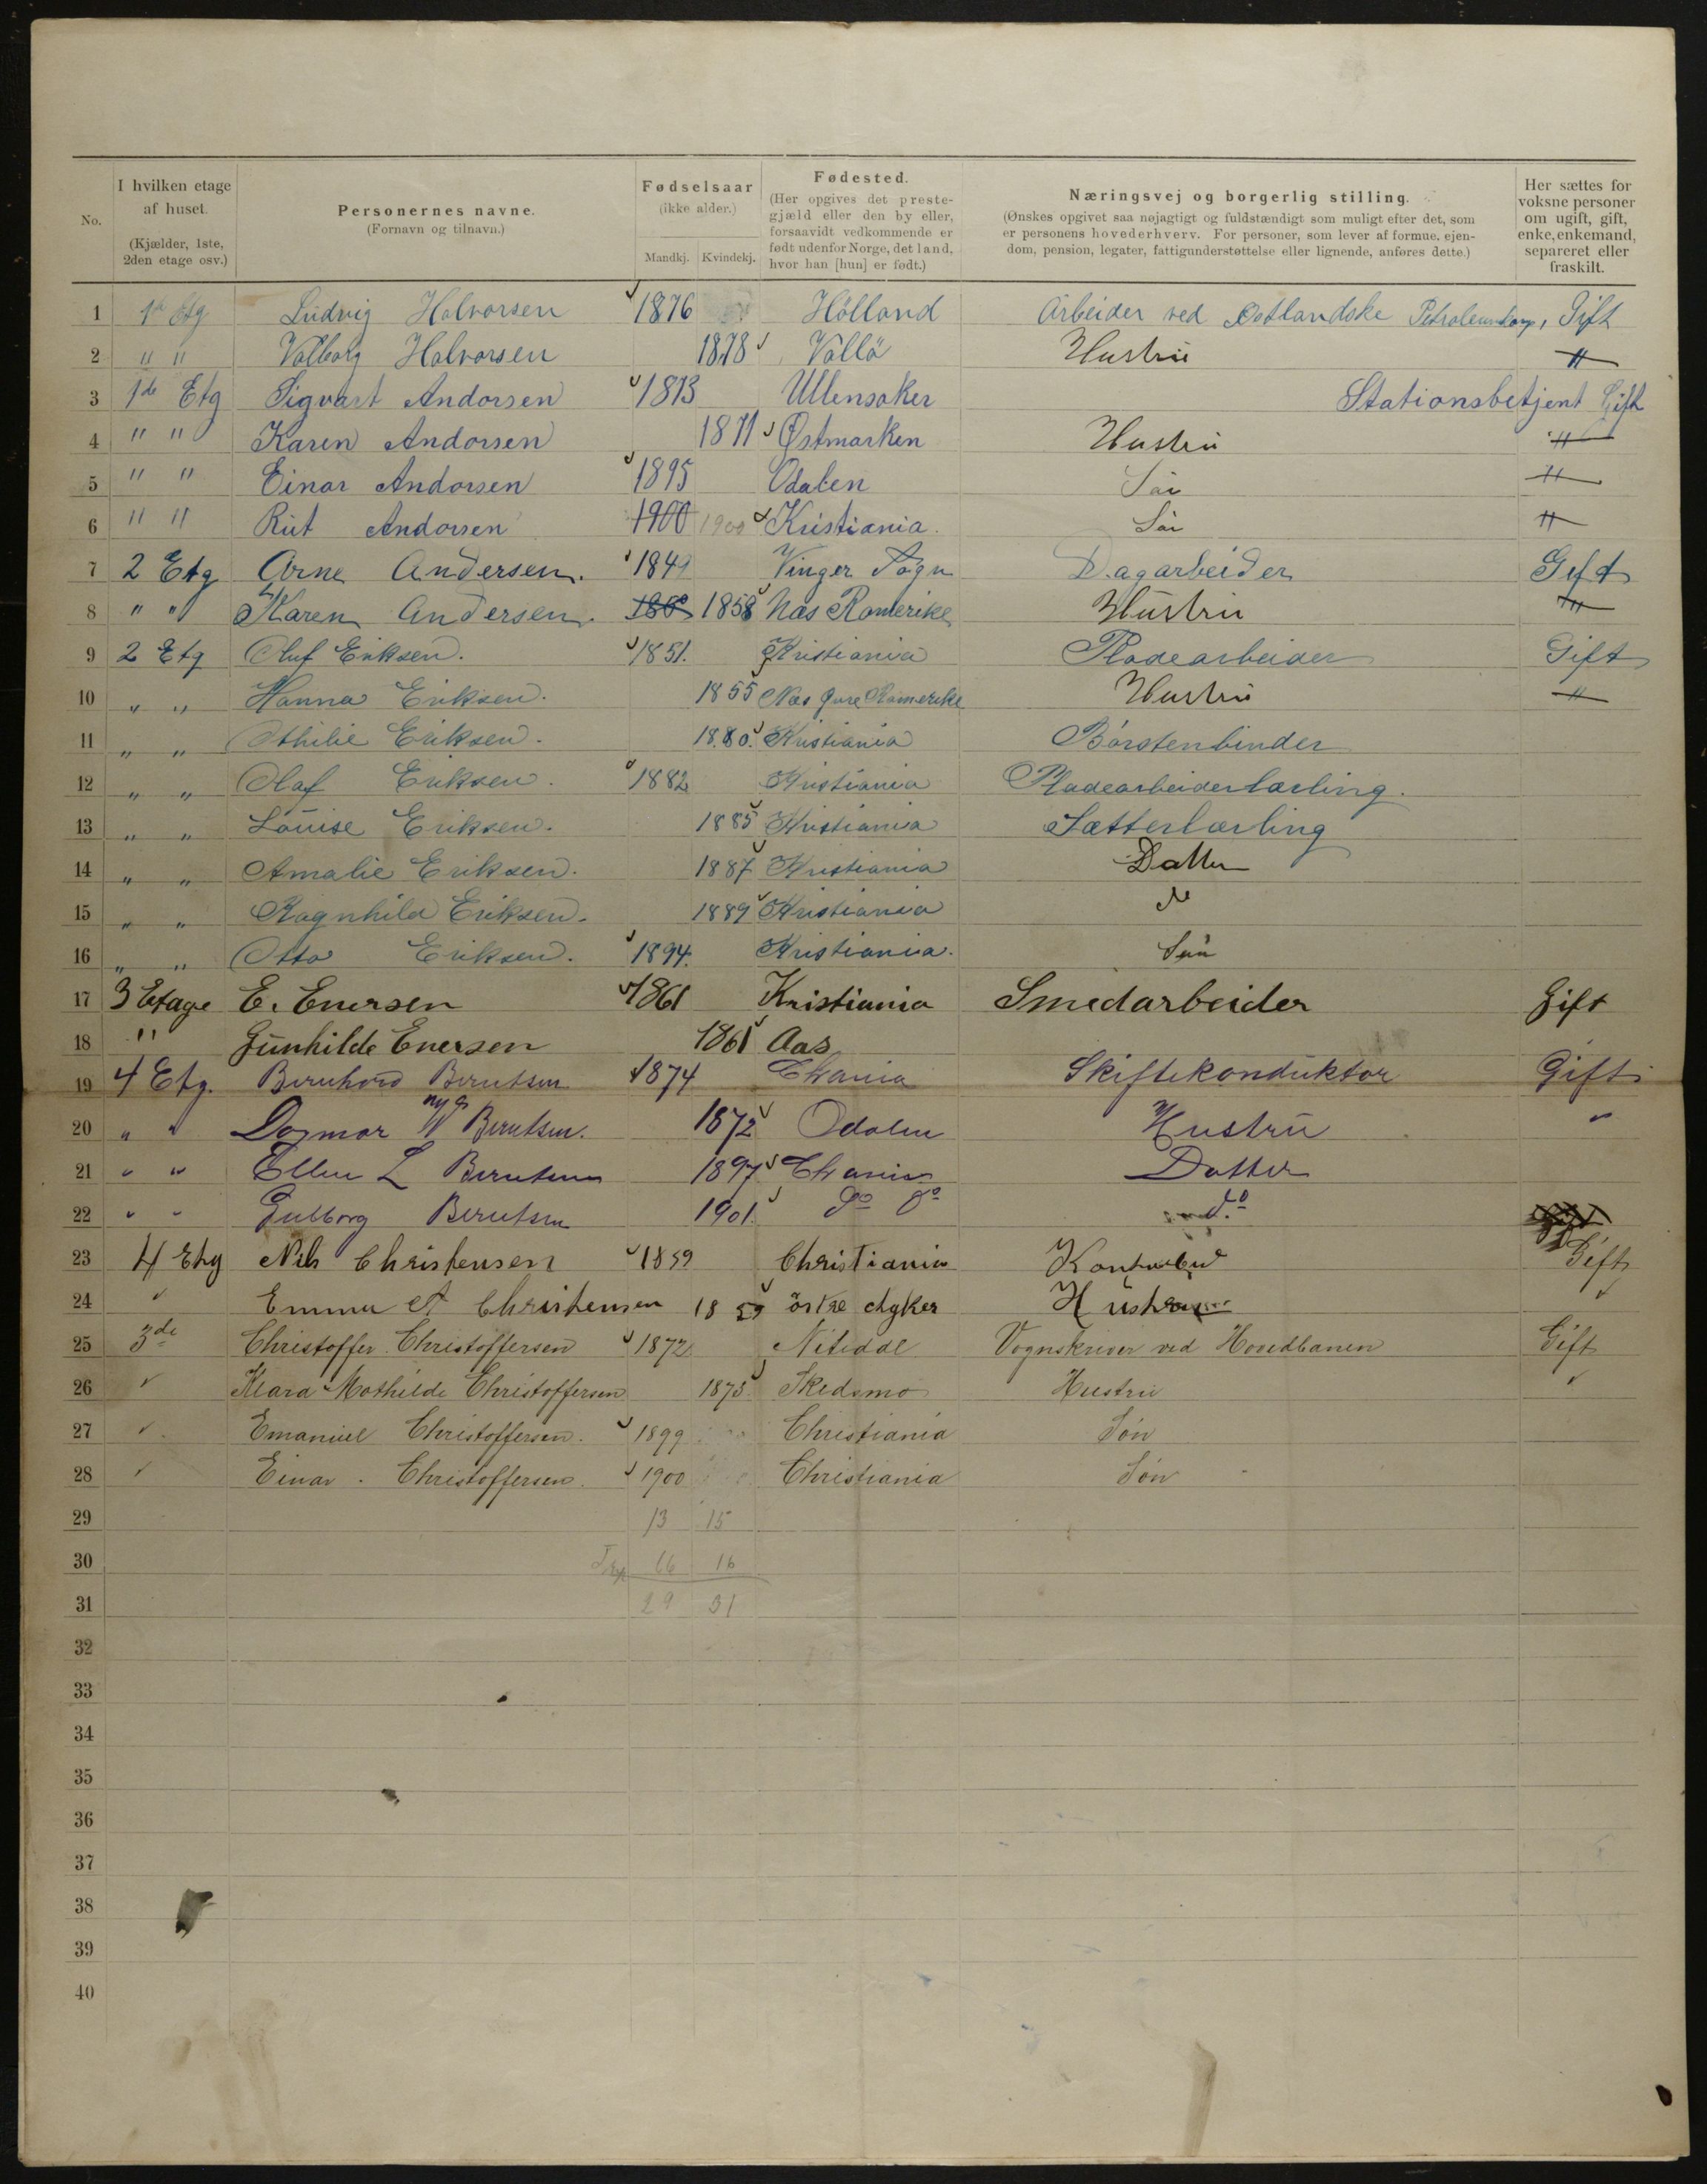 No. I hvilken etage af huset. (Kjælder, 1ste, 2den etage osv.) Personernes navne. (Fornavn og tilnavn.) Fødselsaar (ikke alder.) Mandkj. Kvindekj. Fødested. (Her opgives det prestegjæld eller den by eller, forsaavidt vedkommende er født udenfor Norge, det land, hvor han [hun] er født.) Næringsvej og borgerlig stilling. (Ønskes opgivet saa nøjagtigt og fuldstændigt som muligt efter det, som er personens hovederhverv. For personer, som lever af formue, ejendom, pension, legater, fattigunderstøttelse eller lignende, anføres dette.) Her sættes for voksne personer om ugift, gift, enke, enkemand, separeret eller fraskilt.
1 1ste Etg Ludvig Halvorsen 1876 Hölland Arbeider ved Östlandske Petroleumskomp, Gift
2 " " Valborg Halvorsen 1878 Vallö Hustru "
3 1de Etg Sigvart Andorsen 1873 Ullensaker Stationsbetjent Gift
4 " " Karen Andorsen 1871 Østmarken Hustru "
5 " " Einar Andorsen 1895 Odalen "
6 " " Rut Andorsen 1900 1900 Kristiania. "
7 2 Etg Arne Andersen. 1849 Vinger Sogn Dagarbeider Gift
8 " " Karen Andersen. 1858 Nas Romerike Hustru "
9 2 Etg Oluf Eriksen. 1851. Kristiania Pladearbeider Gift
10 " " Hanna Eriksen. 1855 Nas Romerike Hustru "
11 " " Othilie Eriksen. 1880. Kristiania Børstenbinder
12 " " Olaf Eriksen. 1882 Kristiania Pladearbeiderlærling.
13 " " Louise Eriksen. 1885 Kristiania Sætterlærling
14 " " Amalie Eriksen. 1887 Kristiania Datter
15 " " Ragnhild Eriksen. 1889 Kristiania
16 " " Otto Eriksen. 1894. Kristiania. Søn
17 3 Etage E. Enersen 1861 Kristiania Smedarbeider Gift
18 " Gunhilde Enersen 1861 Aas
19 4 Etg. Bernhard Berntsen 1874 Chania Skiftekonduktør Gift
20 " " Dagmar Berntsen. 1872 Odalen Hustru "
21 " " Ellen L Berntsen 1897 Chania Datter
22 " " Gulborg Berntsen 1901. do do do
23 4 Etg Nils Christensen 1859 Christiania Gift
24 " Emma A Christensen 1859 Hustru "
25 3de Christoffer Christoffersen 1872 Nitedal Vognskriver ved Hovedbanen Gift
26 " Klara Mathilde Christoffersen 1875. Skedsmo Hustru "
27 " Emanuel Christoffersen. 1899 Christiania Søn
28 " Einar Christoffersen. 1900 Christiania Søn
29 13 15
30 16 16
31 29 31
32
33
34
35
36
37
38
39
40